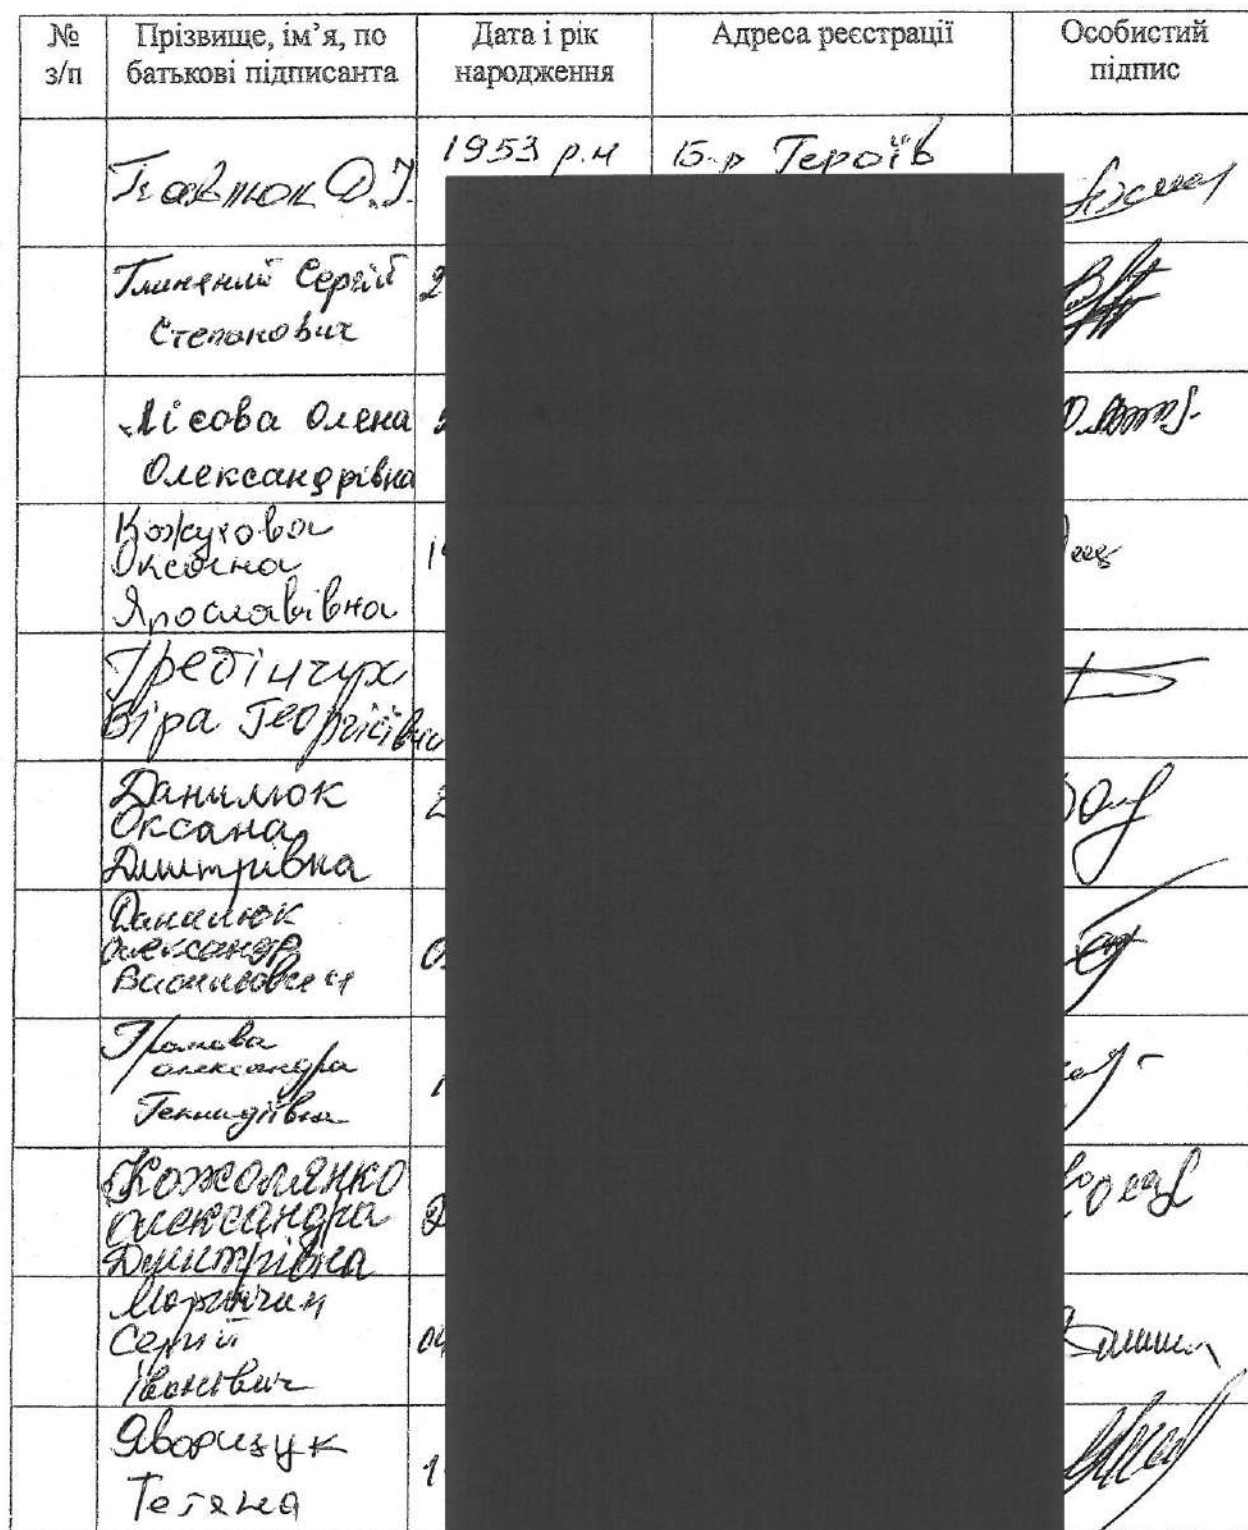 № з/п
Прізвище, ім’я, по батькові підписанта
Дата і рік народження
Адреса реєстрації
Особистий підпис
Д.І.
1953 р.н
б-р Героїв
Сергій
Степанович
2
Лісова Олена
Олександрівна
Кожухова
Оксана
Ярославівна
1
Гребінчук
Віра Георгіївна
Данилюк
Оксана
Дмитрівна
2
Данилюк
Олександр
Васильович
0
Громова
Олександра
Генадіївна
1
Кожолянко
Олександра
Дмитрівна
2
Сергій
Іванович
04
Яворщук
Тетяна
1